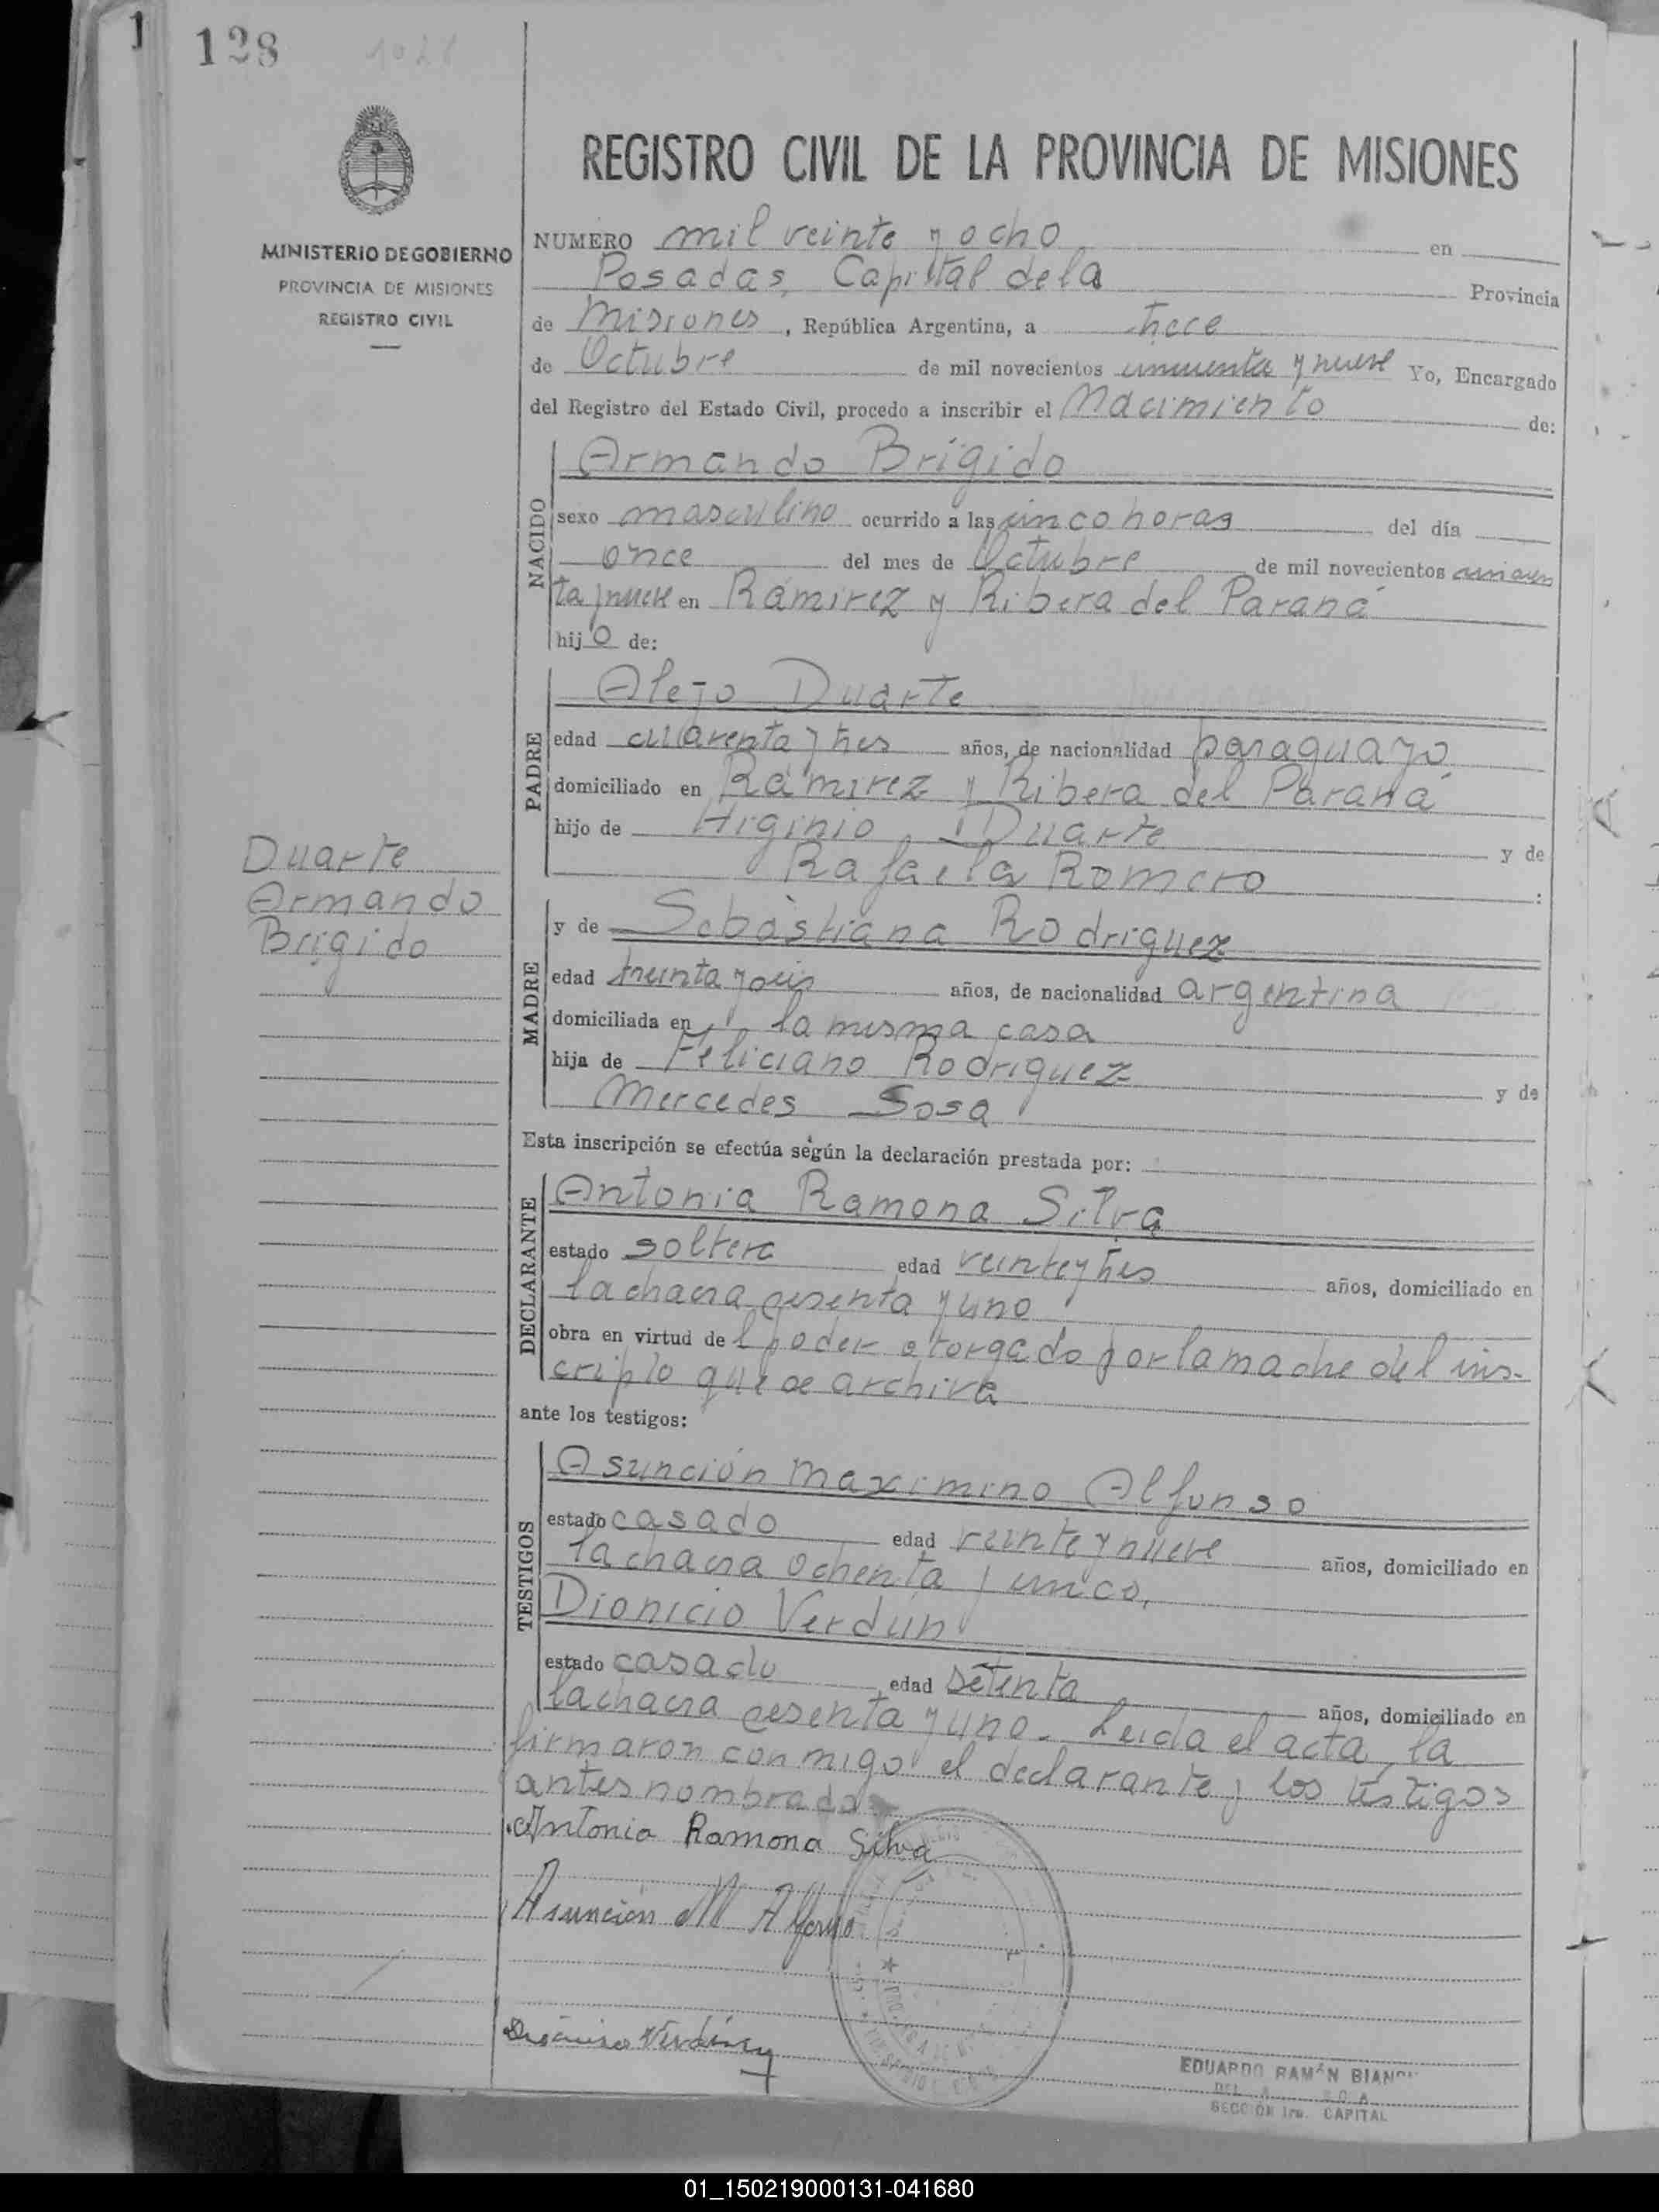 128
1028
MINISTERIO DE GOBIERNO
PROVINCIA DE MISIONES
REGISTRO CIVIL
REGISTRO CIVIL DE LA PROVINCIA DE MISIONES
NUMERO mil veinte y ocho en
Posadas, Capital de la Provincia
de Misiones, República Argentina, a trece
de Octubre de mil novecientos cincuenta y nueve Yo, Encargado
del Registro del Estado Civil, procedo a inscribir el Nacimiento de:
NACIDO
Armando Brígido
sexo masculino ocurrido a las cinco horas del día
once del mes de Octubre de mil novecientos cincuen
ta y nueve en Ramirez y Ribera del Paraná
hijo de:
PADRE
Alejo Duarte
edad cuarenta y tres años, de nacionalidad paraguayo
domiciliado en Ramirez y Ribera del Paraná
hijo de Higinio Duarte y de
Rafaela Romero :
Duarte
Armando
Brigido
MADRE
y de Sebastiana Rodriguez
edad treinta y seis años, de nacionalidad argentina
domiciliada en la misma casa
hija de Feliciano Rodriguez y de
Mercedes Sosa
Esta inscripción se efectúa según la declaración prestada por:
DECLARANTE
Antonia Ramona Silva
estado soltera edad veinte y tres años, domiciliado en
la chacra sesenta y uno
obra en virtud del poder otorgado por la madre del ins-
cripto que se archiva
ante los testigos:
TESTIGOS
Asunción Maximino Alfonso
estado casado edad veinte y nueve años, domiciliado en
la chacra ochenta y cinco,
Dionicio Verdun
estado casado edad setenta años, domiciliado en
la chacra sesenta y uno. Leida el acta, la
firmaron conmigo el declarante y los testigos
antes nombrados
Antonia Ramona Silva
Asunción M Alfonso
Verdun
EDUARDO RAMÓN
SECCIÓN 1ra. CAPITAL
01_150219000131-041680